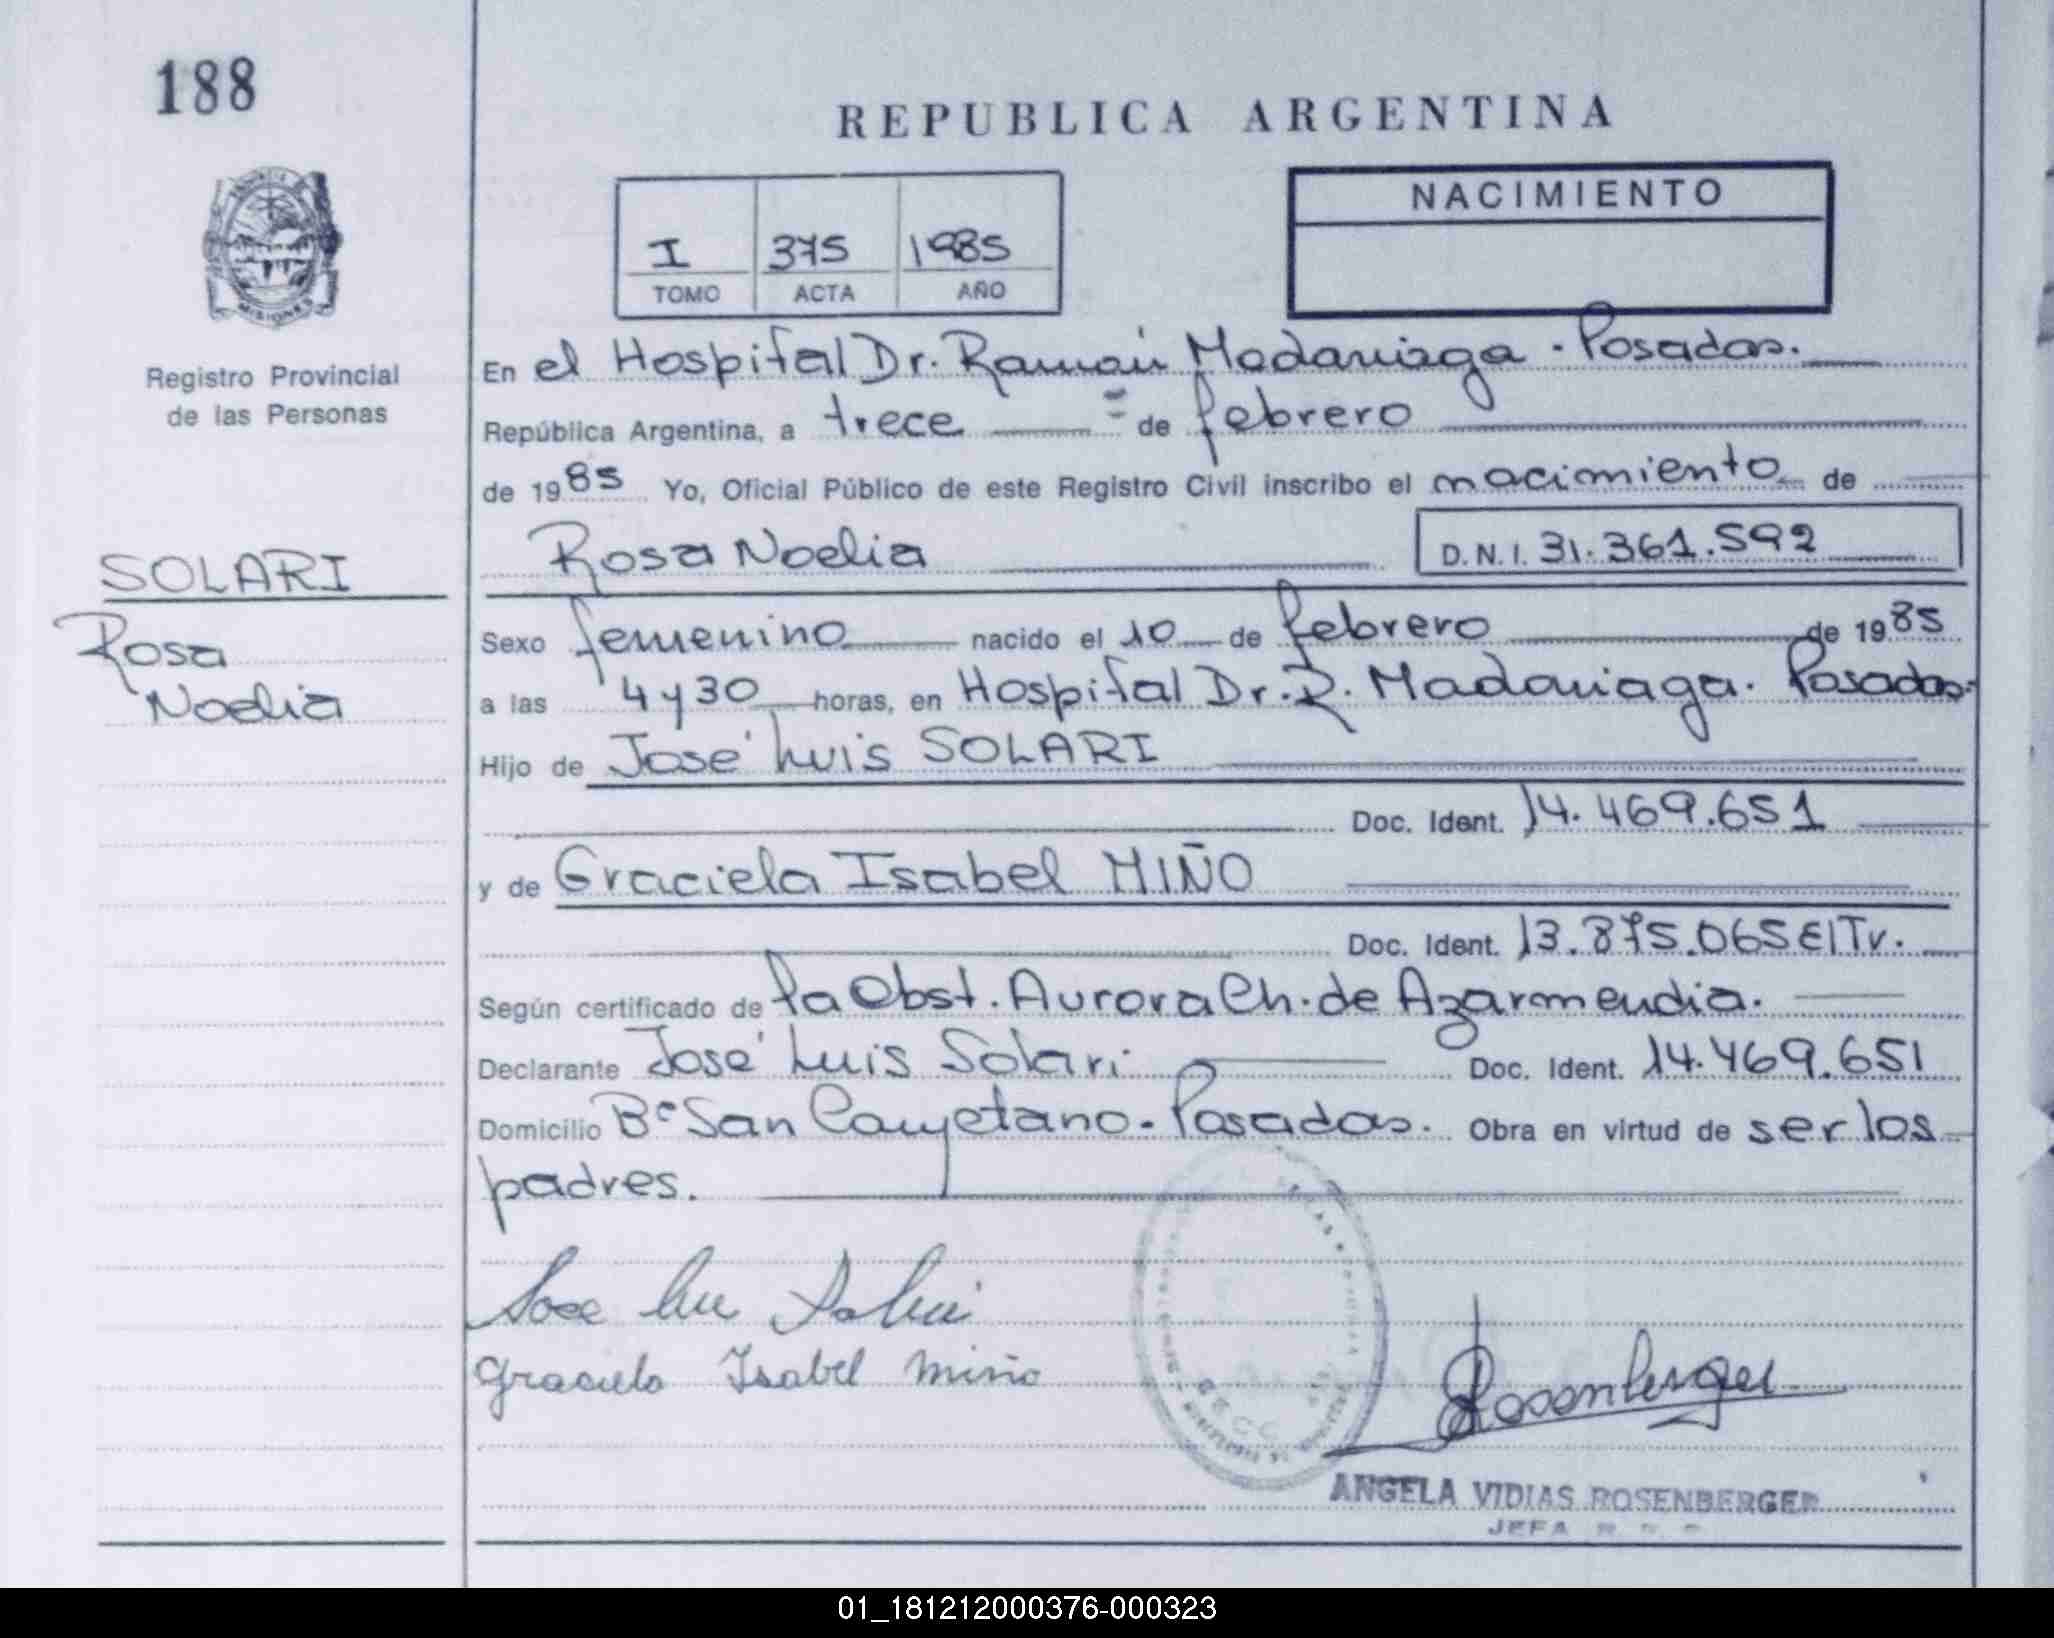 188
REPUBLICA ARGENTINA
NACIMIENTO
I 375 1985
TOMO ACTA AÑO
MISIONES
Registro Provincial
de las Personas
En el Hospital Dr. Ramón Madariaga - Posadas.
República Argentina, a trece de febrero
de 1985 Yo, Oficial Público de este Registro Civil inscribo el nacimiento de
Rosa Noelia D.N.I. 31.361.592
SOLARI
Rosa
Noelia
Sexo femenino nacido el 10 de febrero de 1985
a las 4 y 30 horas, en Hospital Dr. R. Madariaga. Posadas.
Hijo de José Luis SOLARI
Doc. Ident. 14.469.651
y de Graciela Isabel MIÑO
Doc. Ident. 13.875.065 E/Tr.
Según certificado de la Obst. Aurora Ch. de Azarmendia.
Declarante José Luis Solari Doc. Ident. 14.469.651
Domicilio Bº San Cayetano - Posadas. Obra en virtud de ser los
padres.
Jose Luis Solari
Graciela Isabel Miño
Rosenberger
ANGELA VIDIAS ROSENBERGER
JEFA
01_181212000376-000323